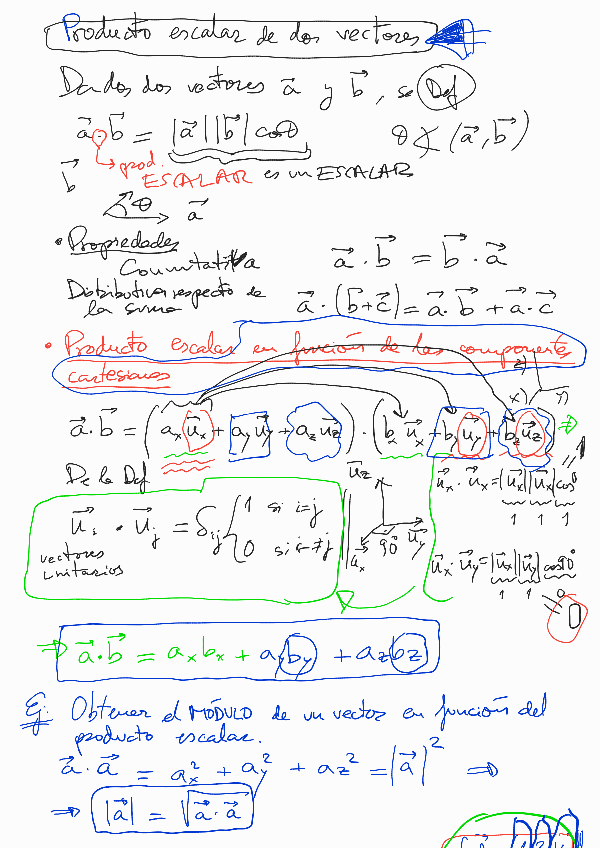 Producto escalar de dos vectores
Dados dos vectores a⃗ y b⃗, se Def
a⃗·b⃗ = |a⃗||b⃗| cosθ θ∢(a⃗,b⃗)
prod.
ESCALAR es un ESCALAR
b⃗
θ a⃗
• Propiedades
Conmutativa a⃗·b⃗ = b⃗·a⃗
Distributiva respecto de
la suma a⃗·(b⃗+c⃗)=a⃗·b⃗+a⃗·c⃗
• Producto escalar en función de las componentes
cartesianas
z) x) y)
a⃗·b⃗ = (aₓu⃗ₓ+a_yu⃗_y+a_zu⃗_z)·(bₓu⃗ₓ+b_yu⃗_y+b_zu⃗_z) ⇒
De la Def
u⃗_z u⃗ₓ 90º u⃗_y
u⃗ₓ·u⃗ₓ=|u⃗ₓ||u⃗ₓ|cos0
1 1 1
u⃗_i·u⃗_j = δ_ij { 1 si i=j
0 si i≠j
vectores
unitarios
u⃗ₓ·u⃗_y=|u⃗ₓ||u⃗_y|cos90º
1 1 0
0
⇒ a⃗·b⃗ = aₓbₓ + a_yb_y + a_zb_z
Ej: Obtener el MÓDULO de un vector en función del
producto escalar.
a⃗·a⃗ = aₓ² + a_y² + a_z² = |a⃗|² ⇒
⇒ |a⃗| = √(a⃗·a⃗)